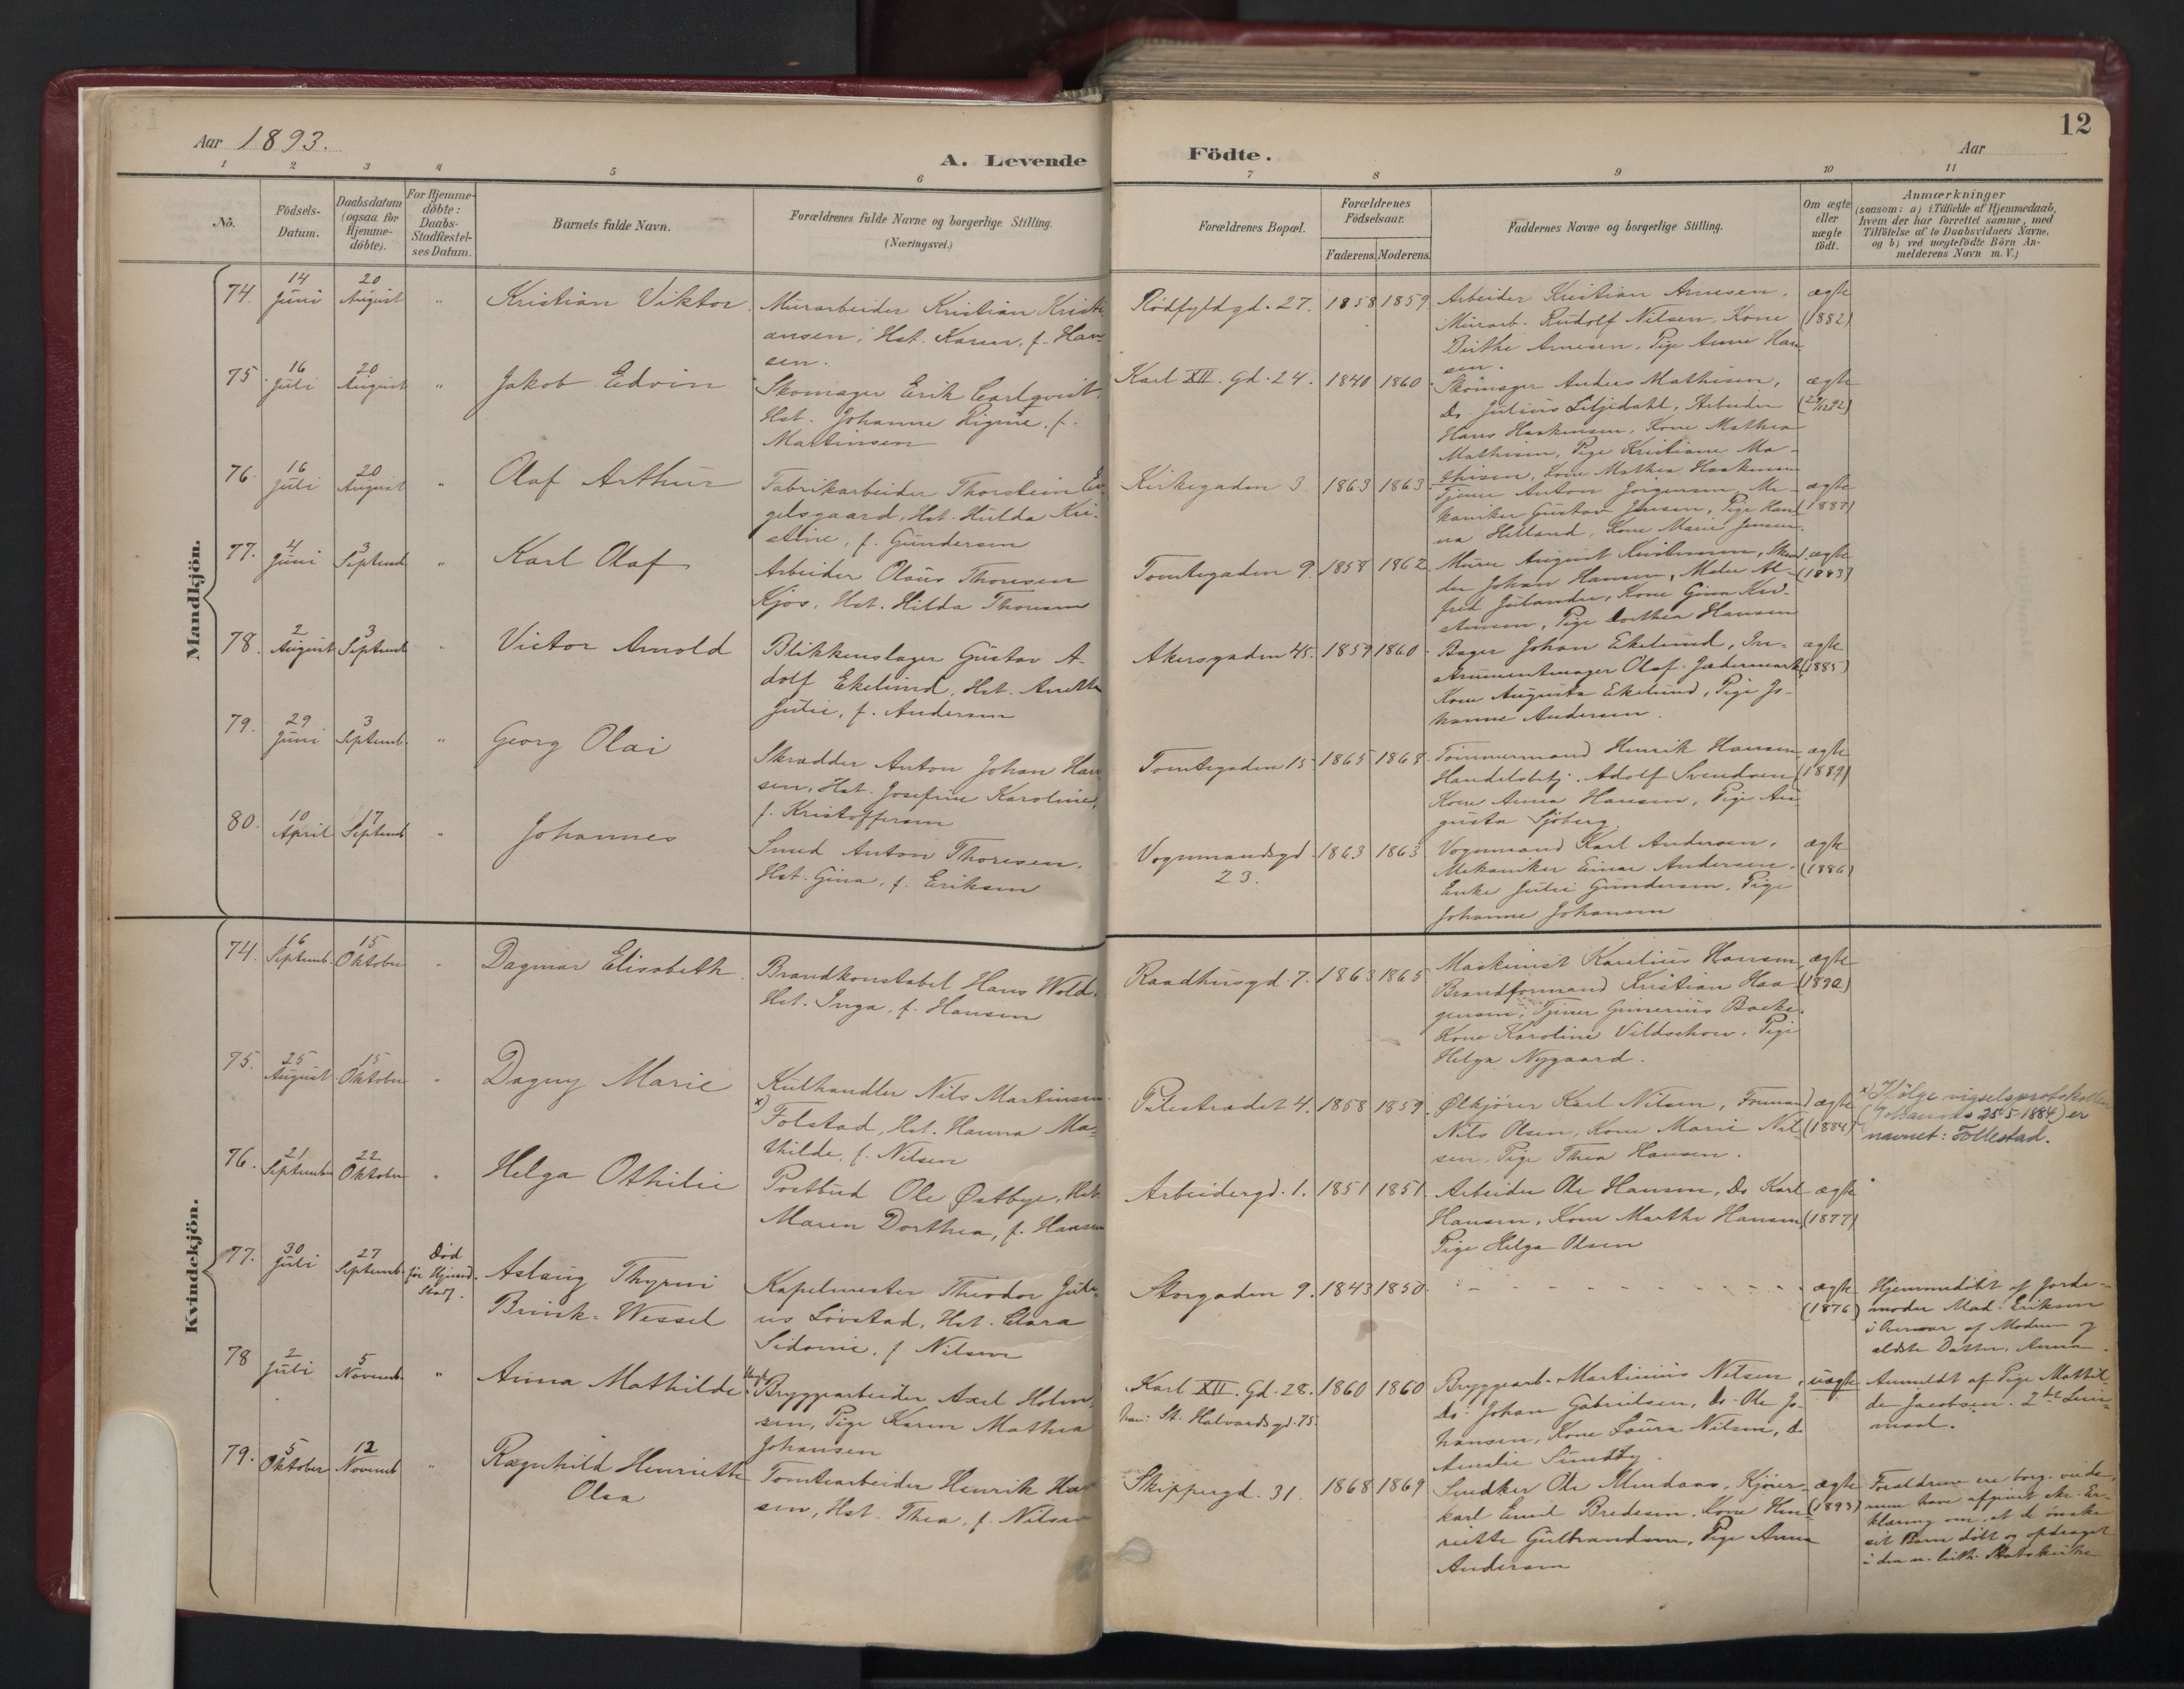 12
Aar 1893.
A. Levende
Födte.
Aar
1 2 3 4 5 6 7 8 9 10 11
No.
Födsels-
Datum.
Daabsdatum
(ogsaa for
Hjemme-
döbte).
For Hjemme-
döbte:
Daabs-
Stadfæstel-
ses Datum.
Barnets fulde Navn.
Forældrenes fulde Navne og borgerlige Stilling.
(Næringsvei.)
Forældrenes Bopæl.
Forældrenes
Födselsaar.
Faderens. Moderens.
Faddernes Navne og borgerlige Stilling.
Om ægte
eller
uægte
födt.
Anmærkninger
(saasom: a) i Tilfælde af Hjemmedaab,
hvem der har forrettet samme, med
Tilföielse af to Daabsvidners Navne,
og b) ved uægtefödte Börn An-
melderens Navn m. V.)
Mandkjön.
74. 14 Juni 20 August " Kristian Viktor.
Murarbeider Kristian Kristi-
ansen, Hst. Karen, f. Han-
sen.
Rödfyldgd. 27. 1858 1859
Arbeider Kristian Arnesen,
Murarb. Rudolf Nilsen, Kone
Birthe Arnesen, Pige Anne Han
sen.
ægte
(1882)
75 16 Juli 20 August " Jakob Edvin
Skomager Erik Carlqvist,
Hst. Johanne Rigine, f.
Martinsen
Karl XII. Gd. 24. 1840 1860
Skomager Anders Mathisen,
Do. Julius Liljedahl, Arbeider
Hans Haakensen, Kone Mathea
Mathisen, Pige Kristiane Ma-
thisen, Kone Mathea Haakensen
ægte
76. 16 Juli 20 August " Olaf Arthur
Fabrikarbeider Thorstein En-
gelsgaard, Hst. Hulda Kri-
stine, f. Gundersen
Kirkegaden 3. 1863 1863
Tjener Anton Jörgensen, Me-
kaniker Gustav Jensen, Pige Han
na Helland, Kone Marie Jensen.
ægte
(1887)
77. 4 Juni 3 Septemb " Karl Olaf
Arbeider Olaus Thoresen
Kjos, Hst. Hilda Thoresen
Tomtegaden 9. 1858 1862
Murer August Kristensen, Skræd
der Johan Hansen, Maler Al-
fred Julander, Kone Gina Kri-
stensen, Pige Dorthea Hansen
ægte
(1883)
78. 2 August 3 Septemb " Victor Arnold
Blikkenslager Gustav A-
dolf Ekelund, Hst. Anette
Julie, f. Andersen
Akersgaden 45. 1859 1860
Bager Johan Ekelund, In-
strumentmager Olaf Jædermark,
Kone Augusta Ekelund, Pige Jo-
hanne Andersen.
ægte
(1885)
79. 29 Juni 3 Septemb. " Georg Olai
Skrædder Anton Johan Han
sen, Hst. Josefine Karoline,
f. Kristoffersen
Tomtegaden 15 1865 1868
Tömmermand Henrik Hansen,
Handelsbetj. Adolf Svendsen,
Kone Anna Hansen, Pige Au
gusta Sjöberg.
ægte
(1889)
80. 10 April 17 Septemb " Johannes
Smed Anton Thoresen,
Hst. Gina, f. Eriksen
Vognmandsgd.
23.
1863 1863
Vognmand Karl Andersen,
Mekaniker Einar Andersen,
Enke Julie Gundersen, Pige
Johanne Johansen
ægte
(1886)
Kvindekjön.
74. 16 Septemb. 15 Oktober " Dagmar Elisabeth.
Brandkonstabel Hans Wold,
Hst. Inga, f. Hansen
Raadhusgd. 7. 1863 1865
Maskinist Karelius Hansen,
Brandformand Kristian Haa-
gensen, Tjener Gunerius Bakke,
Kone Karoline Vildschow, Pige
Helga Nygaard.
ægte
75. 25 August 15 Oktober " Dagny Marie
Kulhandler Nils Martinsen
x) Folstad, Hst. Hanna Ma-
thilde, f. Nilsen
Pilestrædet 4. 1858 1859
Ølkjörer Karl Nilsen, Formand
Nils Olsen, Kone Marie Nil-
sen, Pige Thea Hansen.
ægte
(1884)
x) Ifölge vigselsprotokollen
(Johannes 25-5-1884) er
navnet: Follestad.
76. 21 September 22 Oktober " Helga Othilie
Postbud Ole Østbye, Hst.
Maren Dorthea, f. Hansen
Arbeidergd. 1. 1851 1851
Arbeider Ole Hansen, Do Karl
Hansen, Kone Marthe Hansen,
Pige Helga Olsen
ægte
(1877)
77. 30 Juli 27 Septemb. Död
för Hjemd.
Stadf.
Aslaug Thyrmi
Brinck-Wessel
Kapelmester Theodor Juli-
us Lövstad, Hst. Clara
Sidonie, f Nilsen
Storgaden 9. 1843 1850
ægte
(1876)
Hjemmedöbt af Jorde-
moder Mad. Eriksen
i Nærvær af Moderen og
ældste Datter, Anna.
78 2 Juli 5 Novemb. " Anna Mathilde
Bryggearbeider Axel Holm-
sen, Pige Karen Mathea
Johansen
Karl XII. Gd. 28.
han: St. Halvardsgd. 75.
1860 1860
Bryggearb. Martinius Nilsen,
Do. Johan Gabrielsen, Do. Ole Jo-
hansen, Kone Laura Nilsen, do
Amalie Sundby.
uægte
Anmeldt af Pige Mathil-
de Jacobsen. 2det Leier-
maal.
79. 5 Oktober 12 Novemb " Ragnhild Henriette
Olea
Tomtearbeider Henrik Han
sen, Hst. Thea, f. Nilsen
Skippergd. 31. 1868 1869
Snedker Ole Mendans, Kjörer-
karl Emil Bredesen, Kone Hen-
riette Gulbrandsen, Pige Anna
Andersen
ægte
(1893)
Forældrene ere borg. viede,
men have afgivet skr. Er-
klæring om, at de önske
sit Barn döbt og opdraget
i den ev. luth. Statskirke